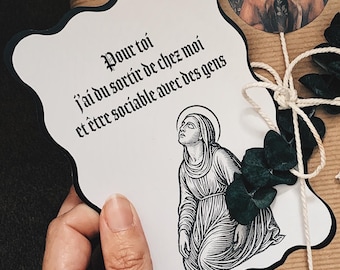 Pour toi
j'ai du sortir de chez moi
et être sociable avec des gens